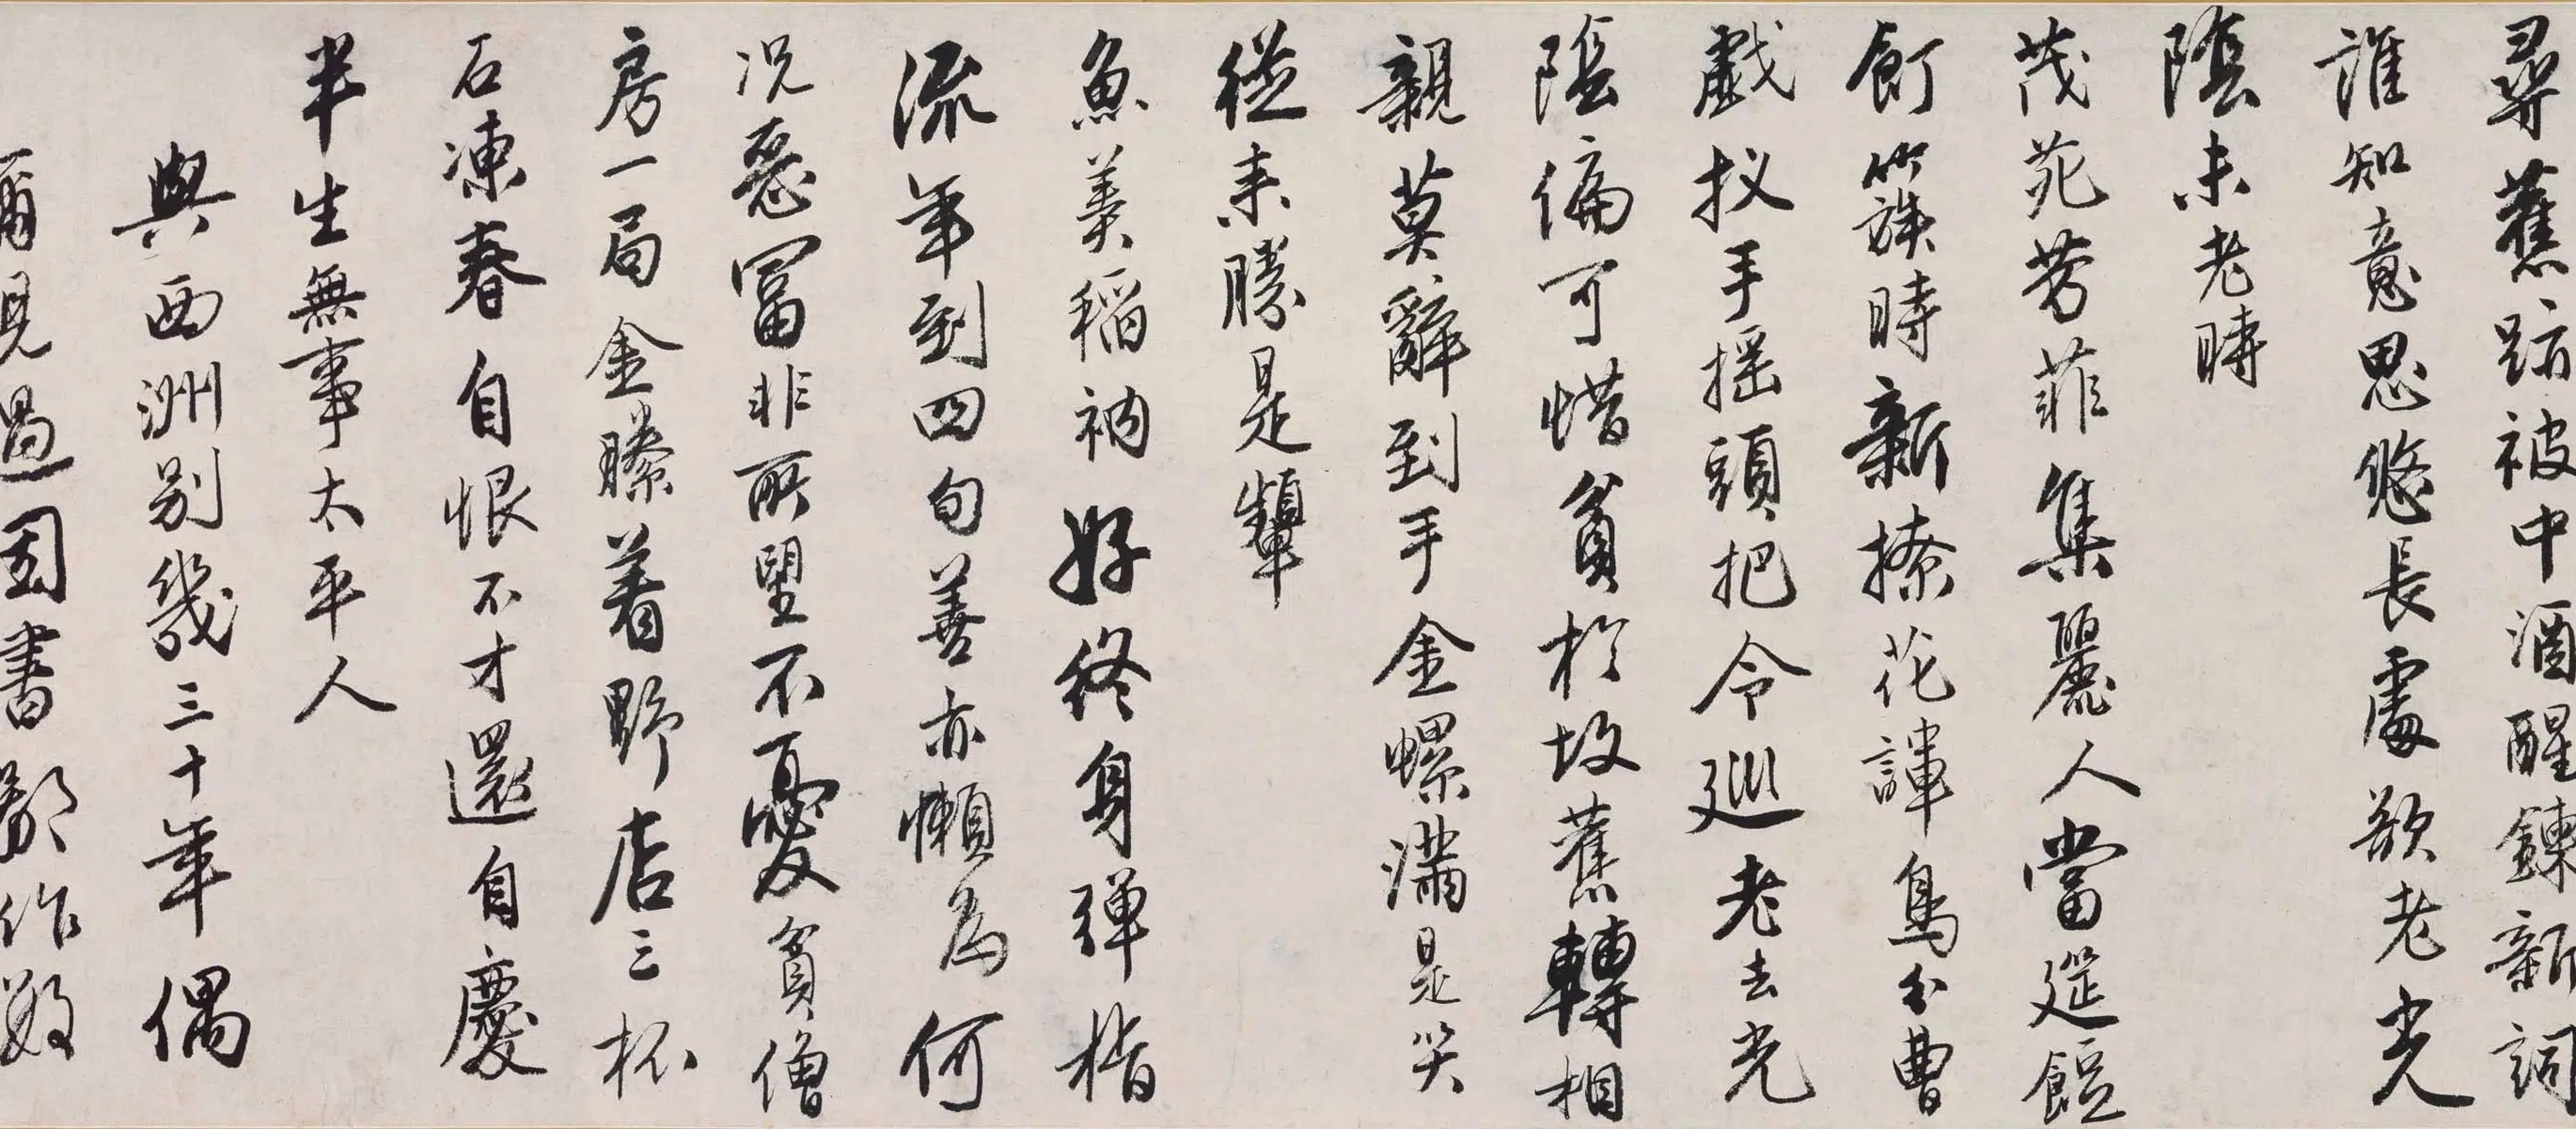 尋舊踪被中酒醒鍊新詞
誰知意思悠長處欲老光
陰未老時
茂苑芳菲集麗人當筵餖
飣簇時新撩花譁鳥分曹
戲扠手摇頭把令巡老去光
陰偏可惜貧於故舊轉相
親莫辭到手金螺滿是笑
從来勝是顰
魚羹稻衲好終身彈指
流年到四旬善亦懶為何
况惡冨非所望不憂貧僧
房一局金縢着野店三杯
石凍春自恨不才還自慶
半生無事太平人
與西洲别幾三十年偶
爾見過因書鄙作數